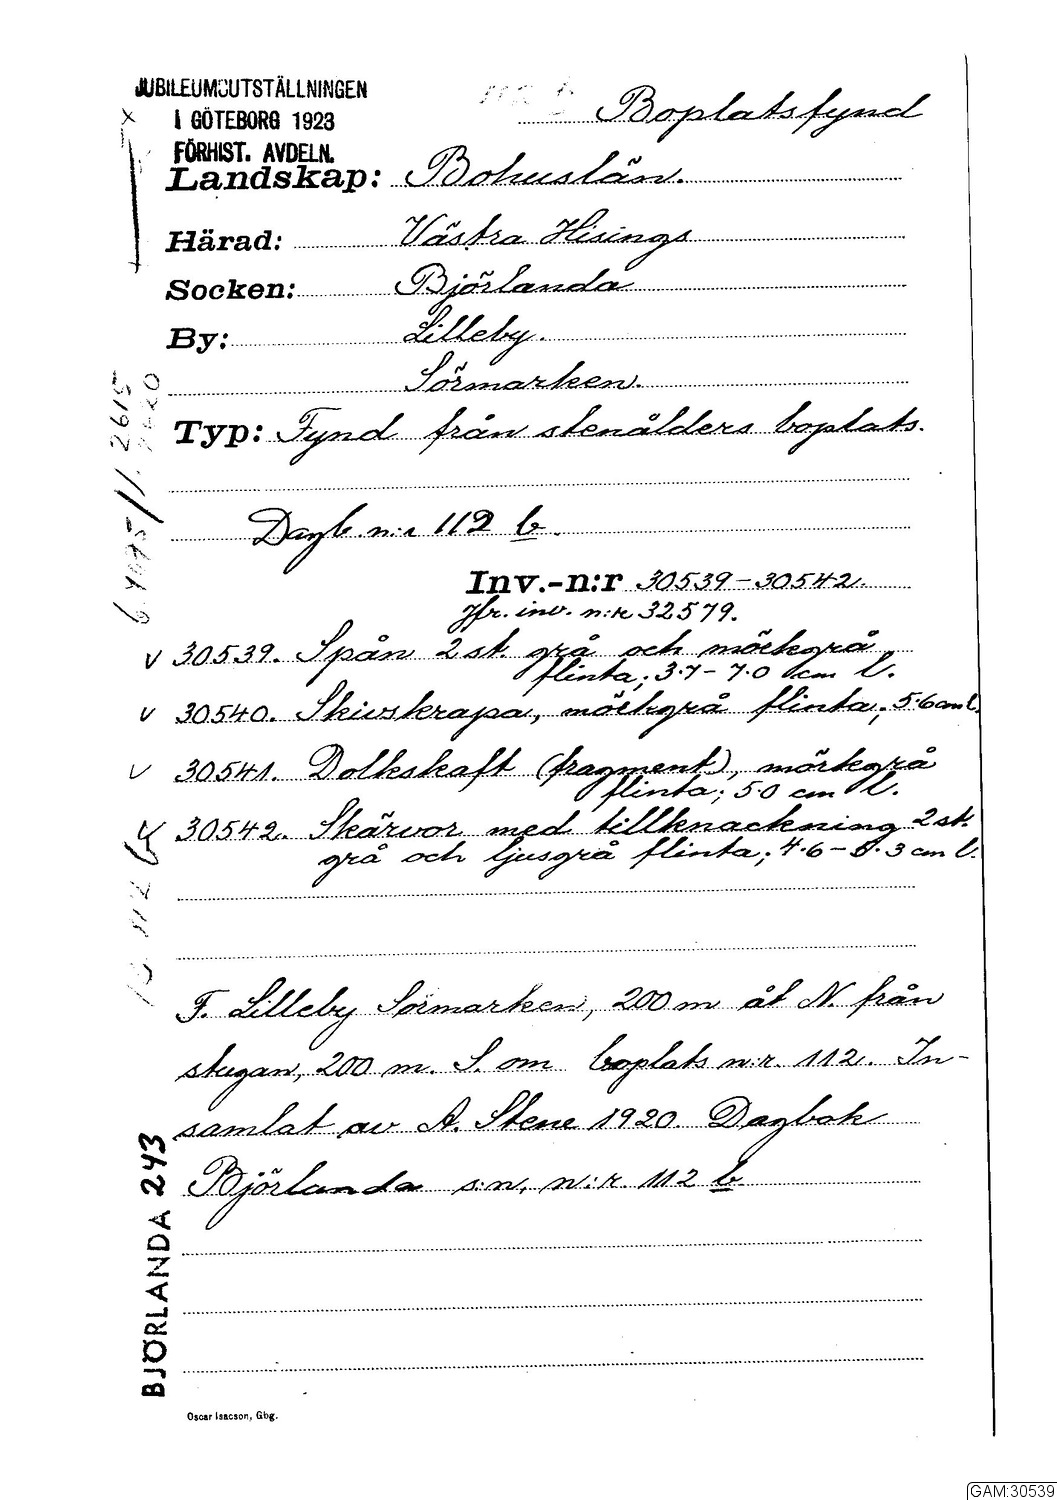 JUBILEUMSUTSTÄLLNINGEN
I GÖTEBORG 1923
FÖRHIST. AVDELN.
Boplatsfynd
Landskap: Bohuslän.
Härad: Västra Hisings
Socken: Björlanda
By: Lilleby.
Sörmarken.
Typ: Fynd från stenålders boplats.
Dagb. n:r 112 b.
Inv.-n:r 30539-30542.
Jfr. inv. n:r 32579.
v 30539. Spån 2 st. grå och mörkgrå
flinta; 3.7-7.0 cm l.
v 30540. Skivskrapa, mörkgrå flinta; 5.6 cm l.
v 30541. Dolkskaft (fragment), mörkgrå
flinta; 5.0 cm l.
v 30542. Skärvor med tillknackning 2 st.
grå och ljusgrå flinta; 4.6- .3 cm l.
F. Lilleby Sörmarken, 200 m åt N. från
stugan, 200 m. S. om boplats n:r. 112. In-
samlat av A. Stene 1920. Dagbok
Björlanda s:n, n:r. 112 b.
BJÖRLANDA 243
Oscar Isacson, Gbg.
GAM:30539